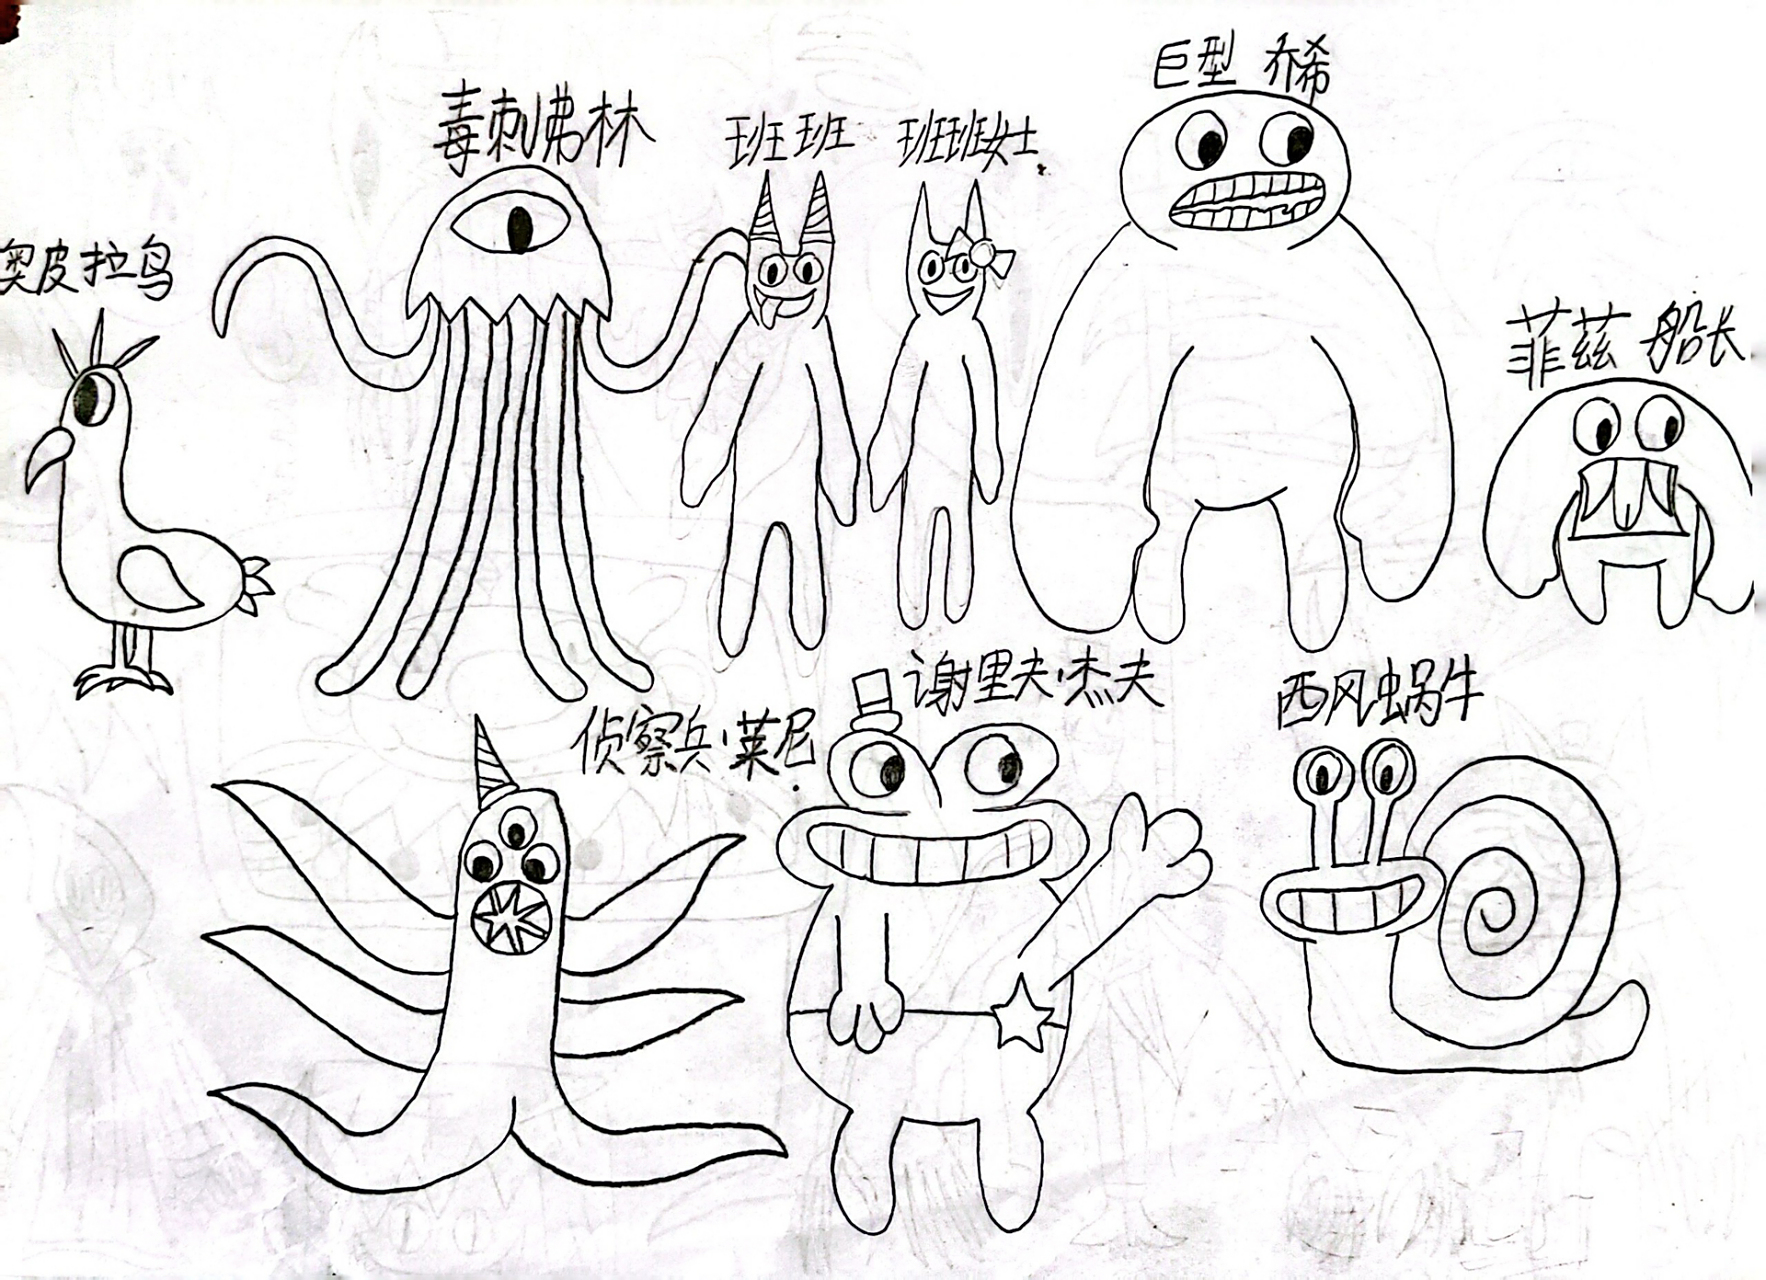 巨型 乔希
毒刺弗林
班班
班班女士
奥皮拉鸟
菲兹 船长
谢里夫·杰夫
西风蜗牛
侦察兵·莱尼